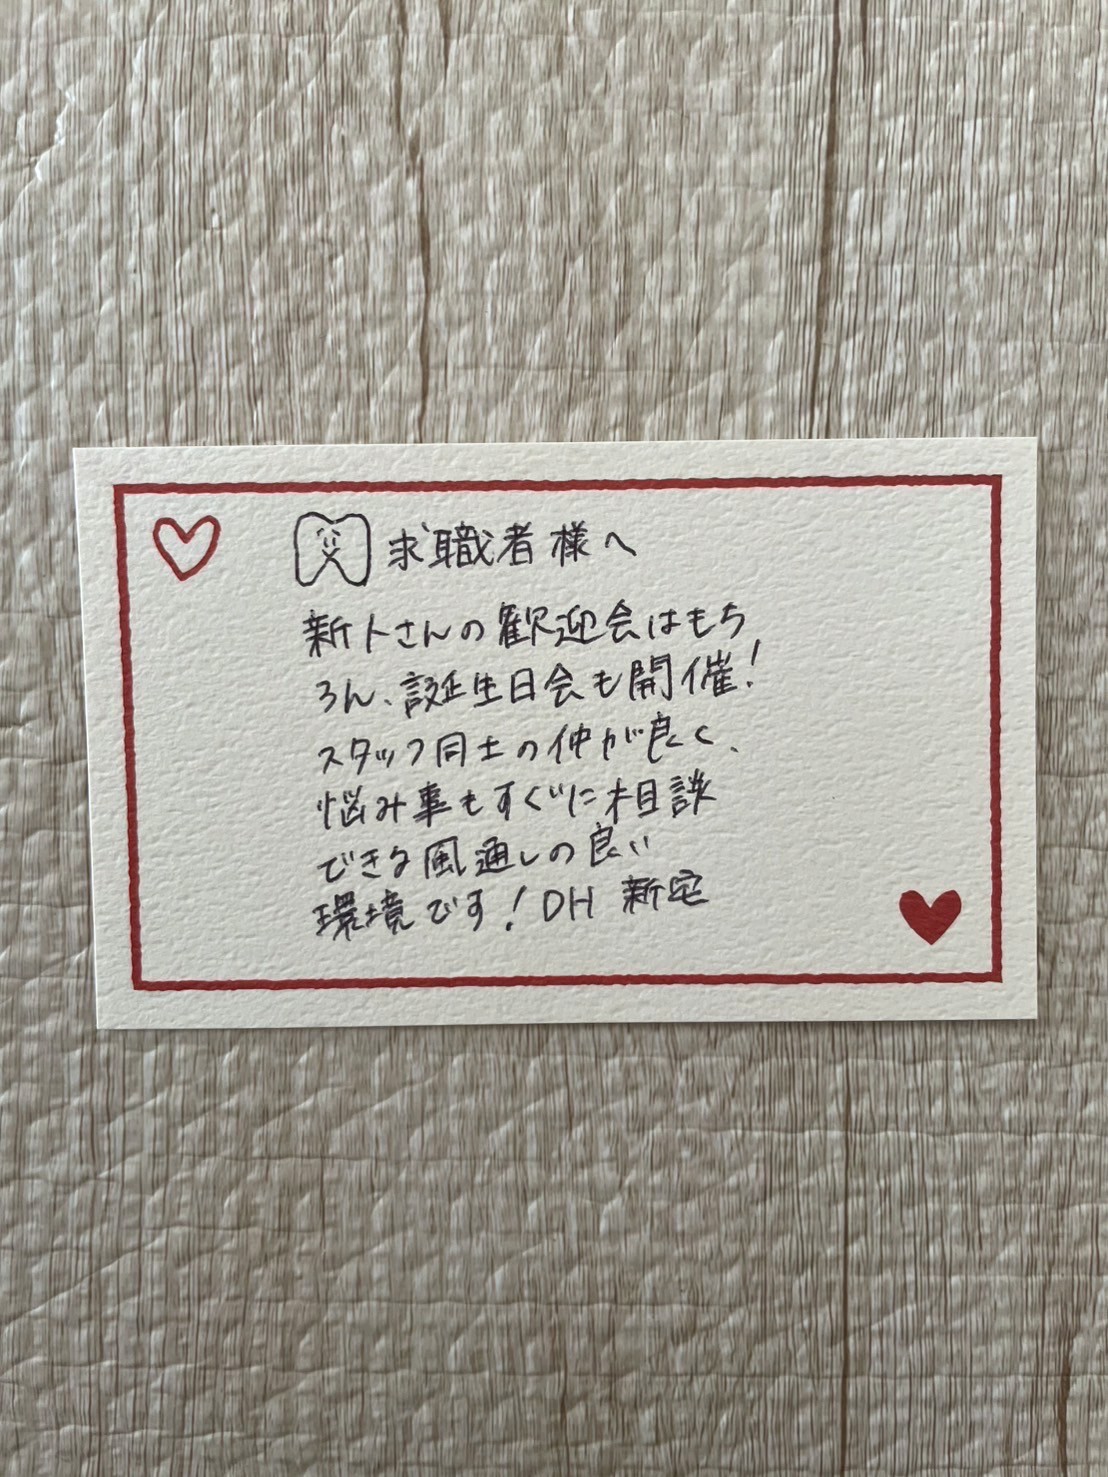 求職者様へ
新人さんの歓迎会はもち
ろん、誕生日会も開催!
スタッフ同士の仲が良く、
悩み事もすぐに相談
できる風通しの良い
環境です!DH 新宅